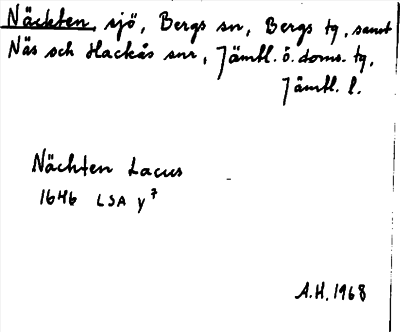 Näckten, sjö, Bergs sn, Bergs tg, samt
Näs och Hackås snr, Jämtl. ö. doms. tg,
Jämtl. l.
Nächten Lacus
1646 LSA y⁷
A.H. 1968